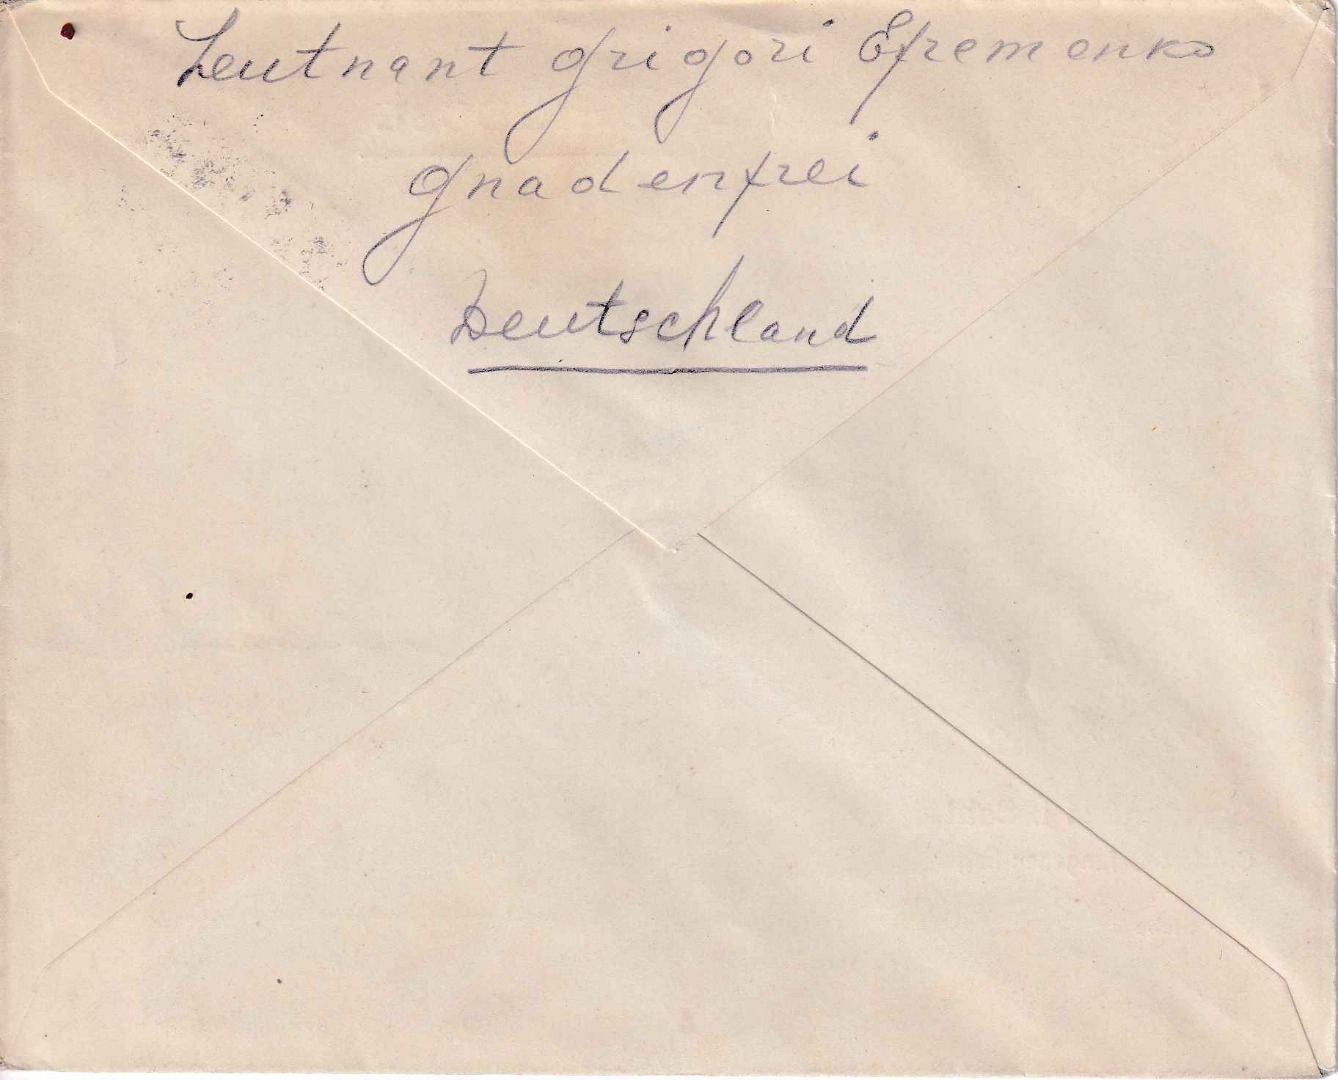 Leutnant Grigori Efremenko
Gnadenfrei
Deutschland